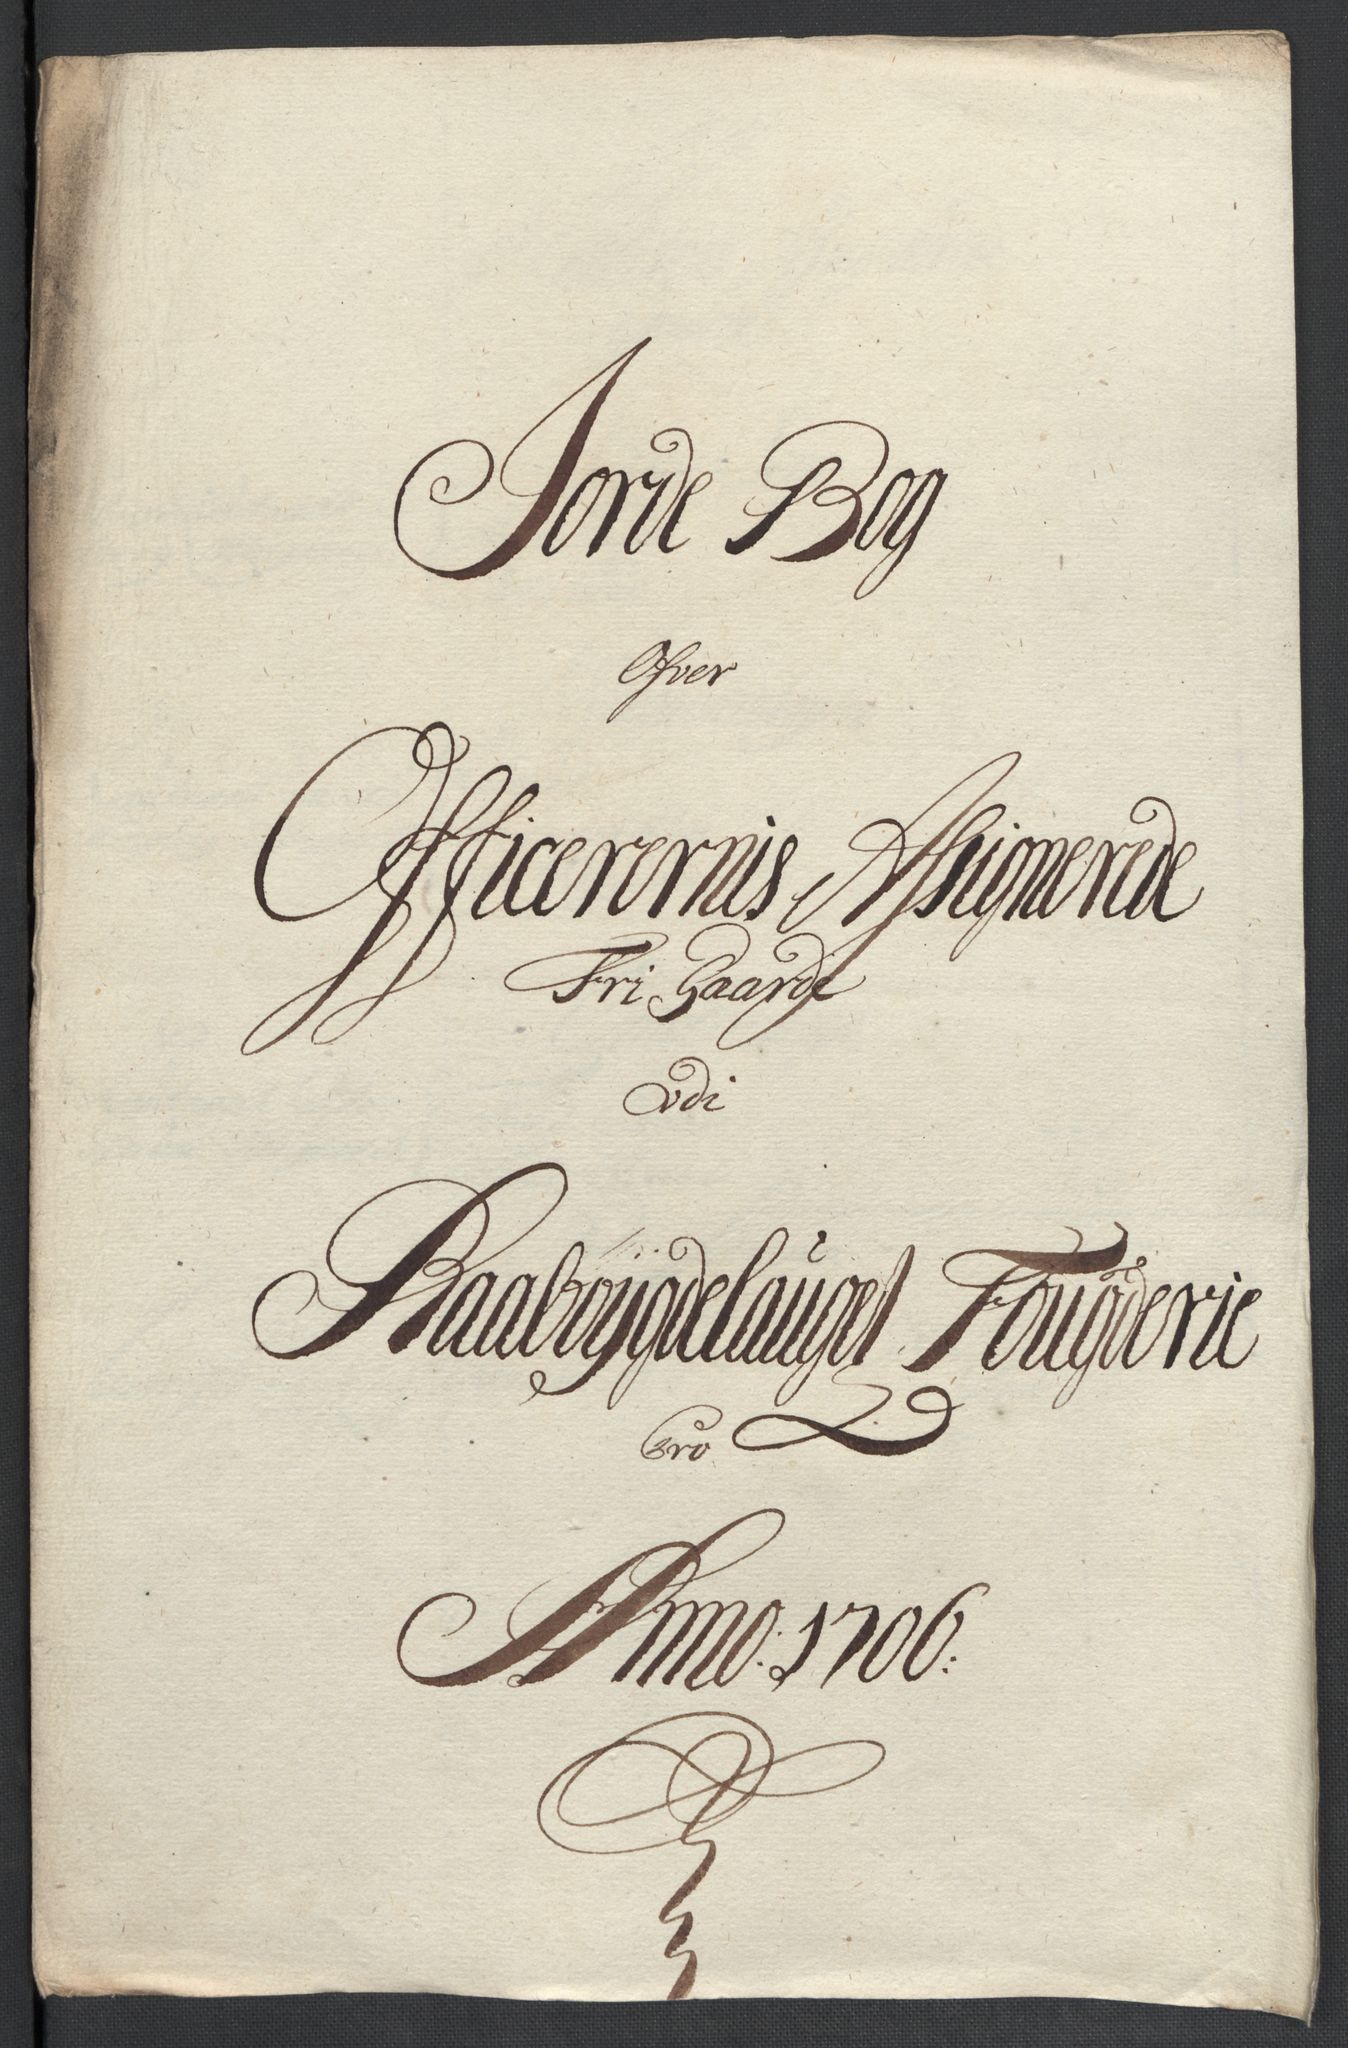 Jorde Bog
Ofver
Officerernis Assignerede
Fri Gaarde
Udi
Raabøygdelauget Fougderie
Pro
Anno: 1706: